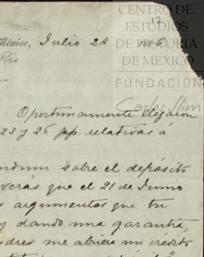 CENTRO DE
ESTUDIOS
DE HISTORIA
DE MEXICO
FUNDACIÓN
Carlos Slim
17
México, Julio 24
Rio
Oportunamente llegaron
23 y 26 pp. relativas á
sobre el depósito
verás que el 21 de Junio
argumentos que tu
y dando una garantía,
me abriera un crédito